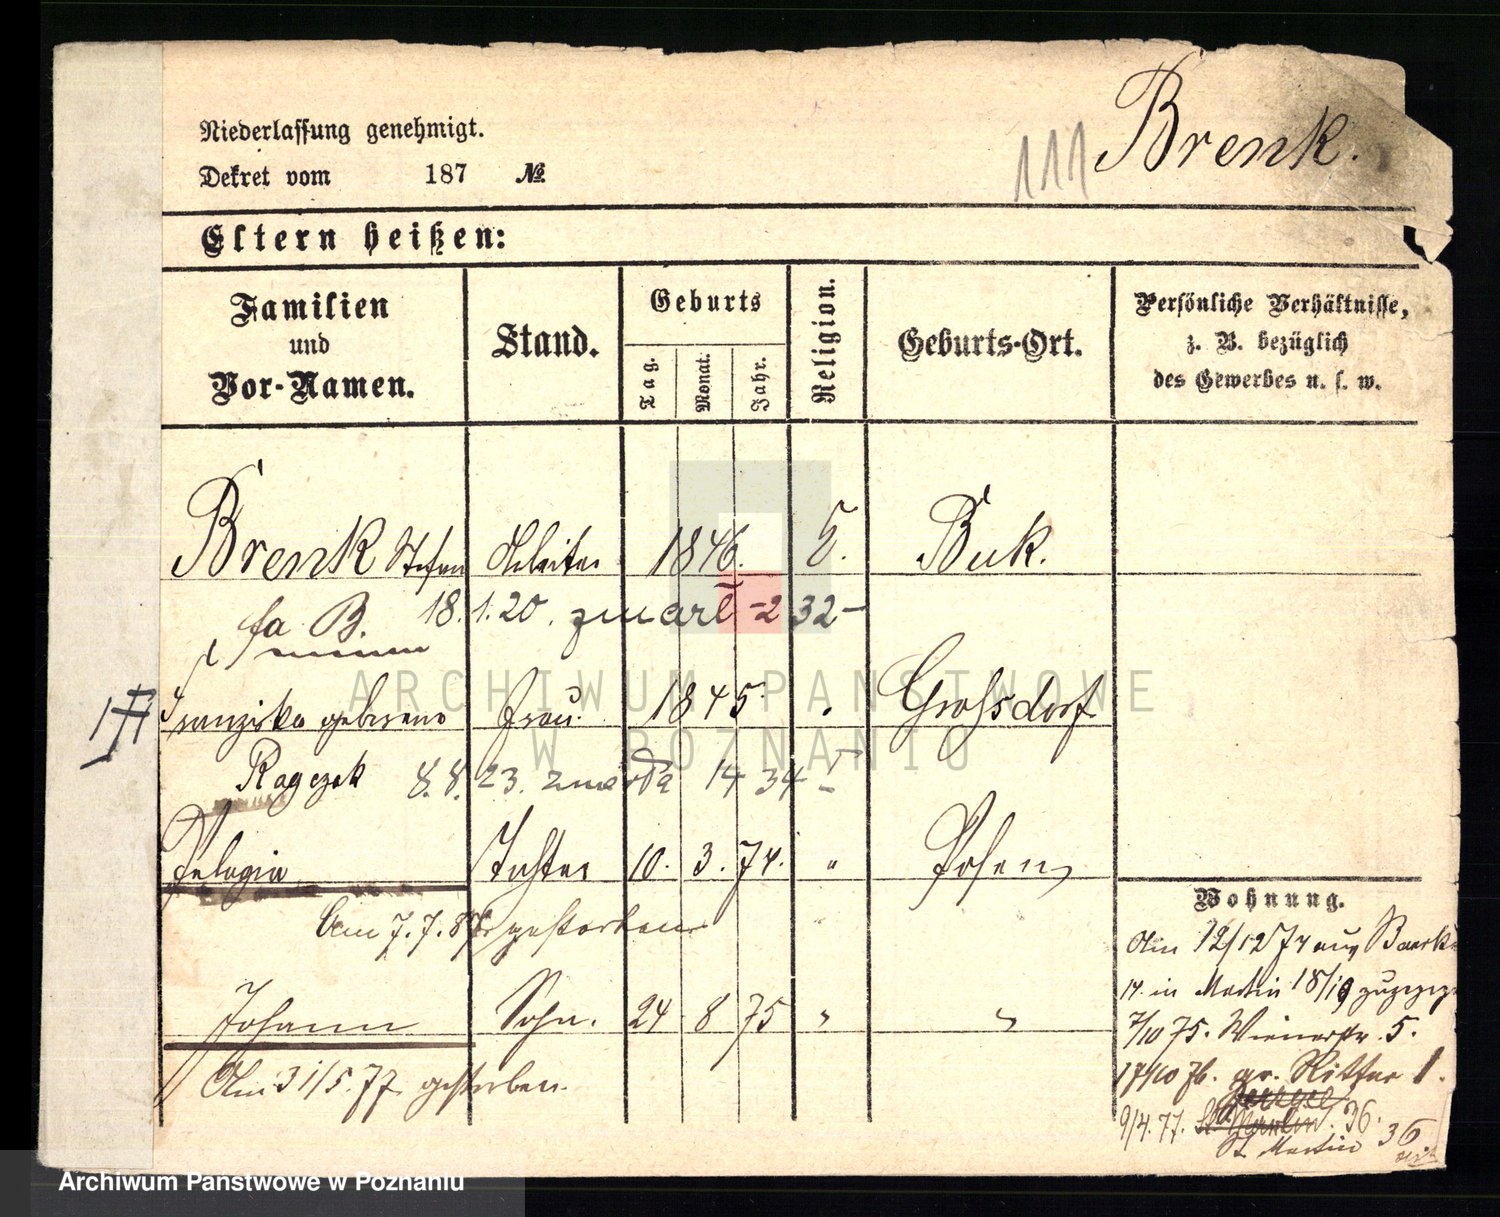 Niederlassung genehmigt.
Dekret vom 187 №
111 Brenk.
Eltern heißen:
Familien und Vor-Namen.
Stand.
Geburts
Tag. Monat. Jahr.
Religion.
Geburts-Ort.
Persönliche Verhältnisse,
z. B. bezüglich
des Gewerbes u. s. w.
Brenk Stefan Arbeiter 1846. Buk.
fa B. 18.1.20. zmarł -232-
Franziska geborene Frau. 1845. Großdorf
8.8.23. zmarła 1434
Pelagia Tochter 10. 3. 74. " Posen
Am 7.7.87 gestorben
Johann Sohn. 24 8 75 " "
Am 31/5.77 gestorben.
Wohnung.
Am 12/12 74 aus
14. in Martin 18/19
7/10 75. Wienerstr. 5.
17/10 76. gr. Ritter 1.
9/4.77. 36.
St Martin 36.
ARCHIWUM PAŃSTWOWE
W POZNANIU
Archiwum Państwowe w Poznaniu